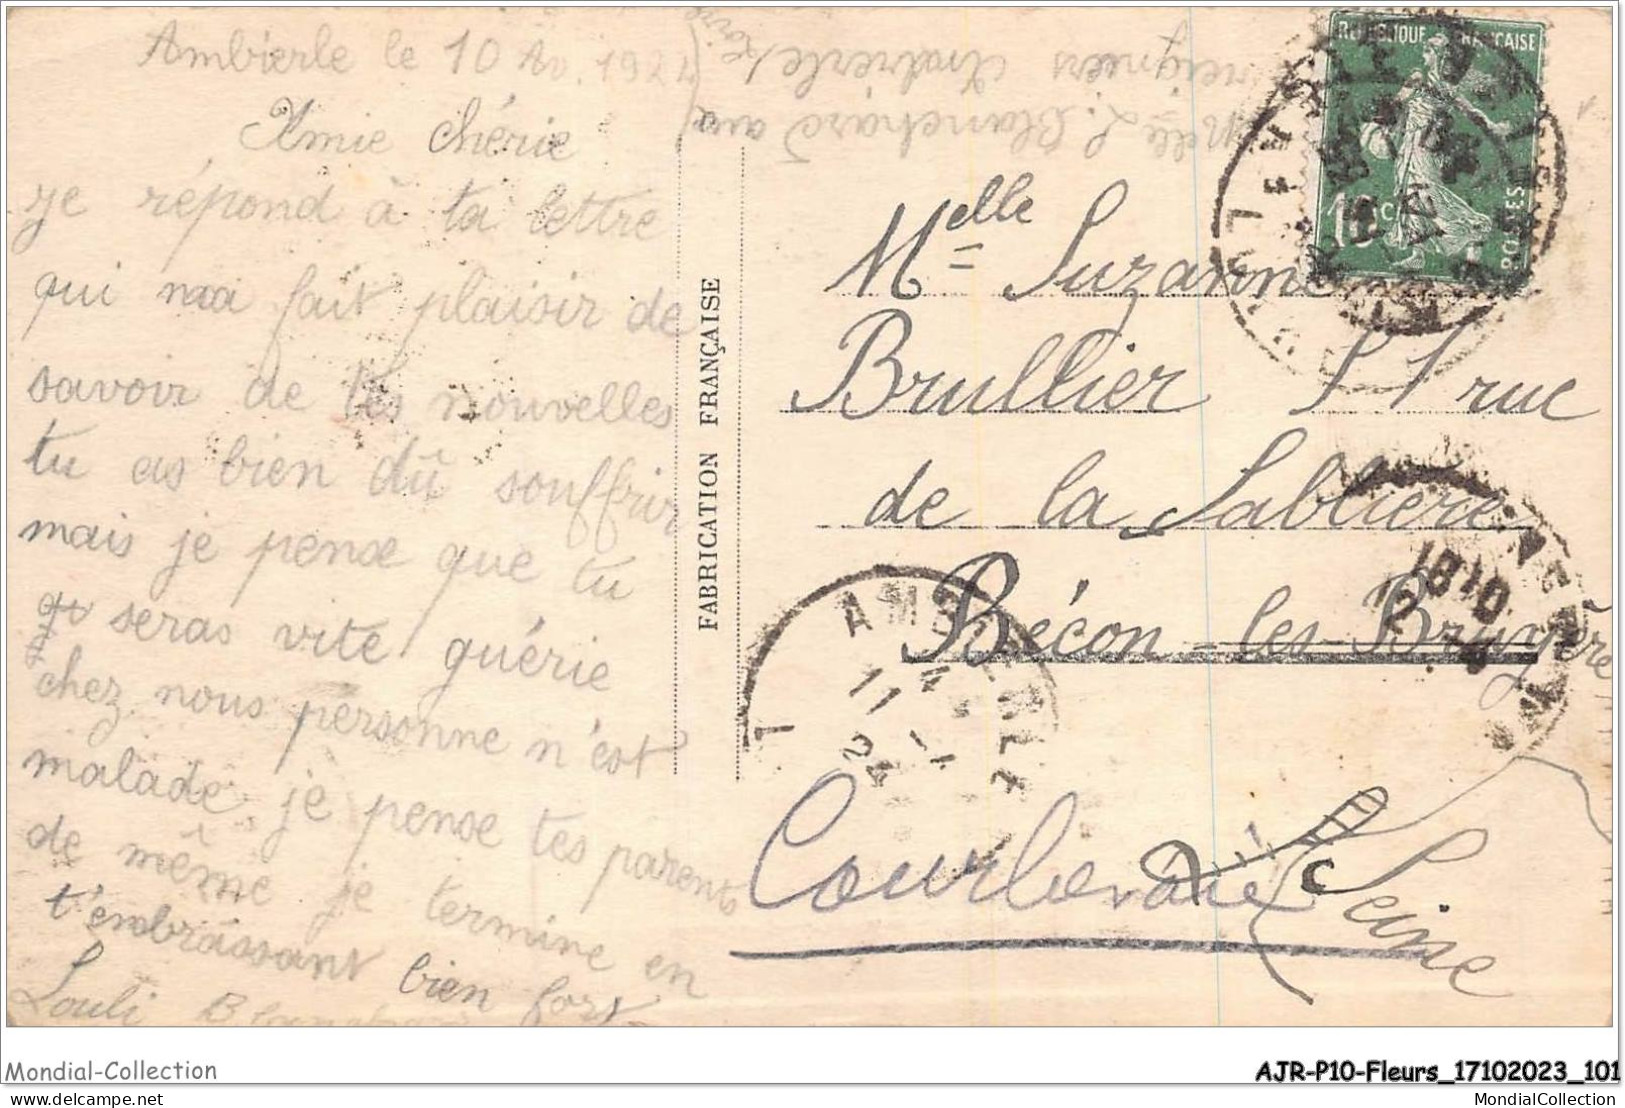 Ambierle le 10 Av. 192
Amie chérie
je répond à ta lettre
qui naa fait plaisir de
savoir de tes nouvelles
tu as bien dû souffrir
mais je pense que tu
seras vite guérie
chez nous personne n'est
malade je pense tes parents
de même je termine en
t'embrassant bien fort
Louli B
Melle L. Blanchard aux
Ambierle Loire
FABRICATION FRANÇAISE
REPUBLIQUE FRANÇAISE
10 c
POSTES
Melle Suzanne
Brullier rue
de la Sablière
Bécon-les-Bruyère
Courbevoie
Seine
AMBIERLE
11 - 4
24
18 10
12 - 4
Mondial-Collection
AJR-P10-Fleurs_17102023_101
mc_fr
MondialCollection